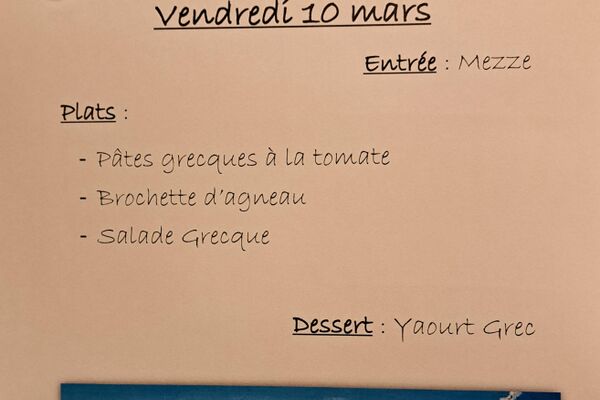 Vendredi 10 mars
Entrée : Mezze
Plats :
- Pâtes grecques à la tomate
- Brochette d'agneau
- Salade Grecque
Dessert : Yaourt Grec